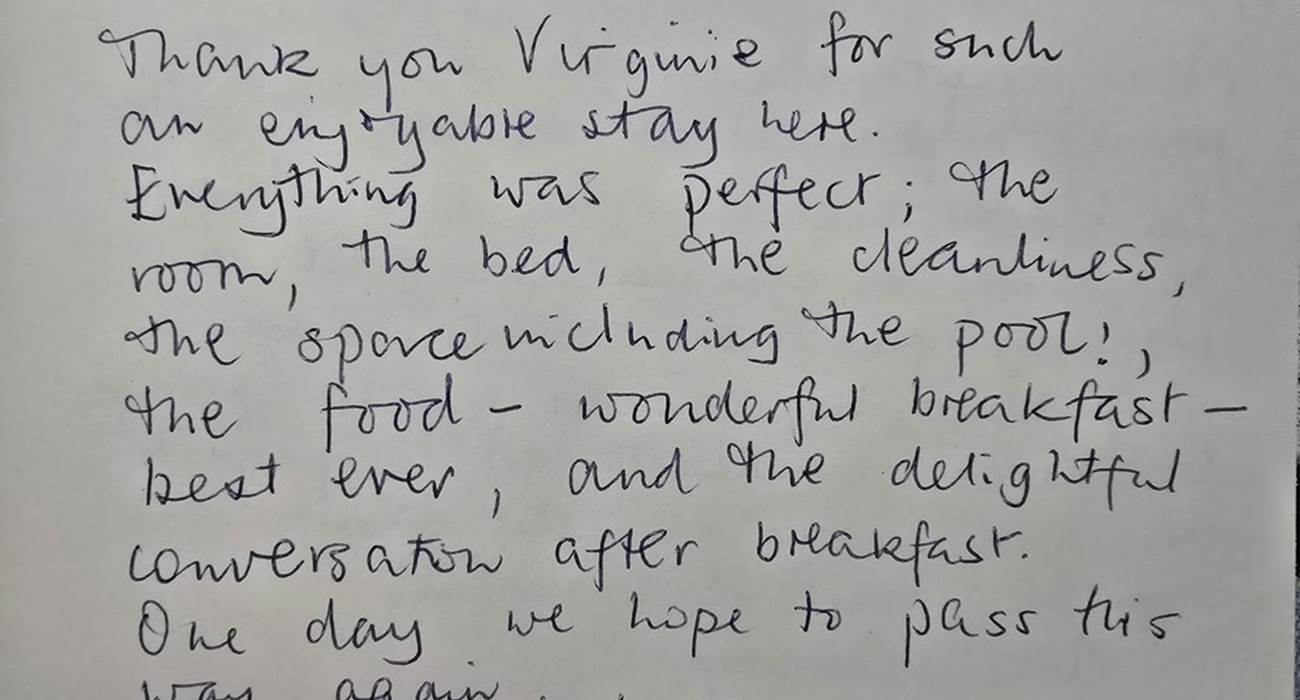 Thank you Virginie for such
an enjoyable stay here.
Everything was perfect; the
room, the bed, the cleanliness,
the space including the pool!,
the food – wonderful breakfast –
best ever, and the delightful
conversation after breakfast.
One day we hope to pass this
way again.